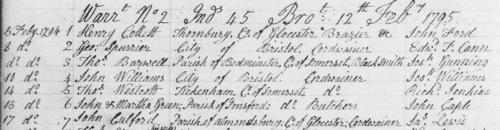 Warrt No 2 Ind 45 Brot 12th Feby 1795
5 Feby 1794 1 Henry Collett Thornbury, C. of Glocester Brazier &c John Ford
8 do 2 Geo. Spurrier City of Bristol Cordwainer Edwd T. Cann
do do 3 Thos Barwell Parish of Bedminster, C. of Somerset, Black Smith Jos. Gunning
10 do 4 John Williams City of Bristol Cordwainer Jos. Williams
14 do 5 Thos Westcott Tickenham, C. of Somerset do Richd Jenkins
16 do 6 John & Martha Green; Parish of do Butchers John Caple
17 do 7 John Parish of Almondsbury C. of Glocester; Cordwainer Jas. Lewis